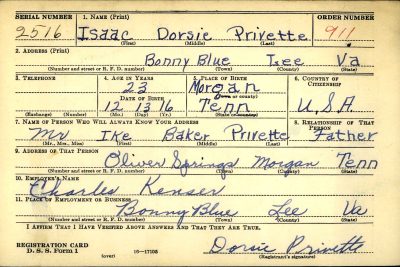 SERIAL NUMBER 1. NAME (Print) ORDER NUMBER
2516 Isaac Dorsie Privette 911
(First) (Middle) (Last)
2. ADDRESS (Print)
Bonny Blue Lee Va
(Number and street or R. F. D. number) (Town) (County) (State)
3. TELEPHONE 4. AGE IN YEARS 5. PLACE OF BIRTH 6. COUNTRY OF CITIZENSHIP
23 Morgan
DATE OF BIRTH (Town or county)
12 13 16 Tenn U.S.A
(Exchange) (Number) (Mo.) (Day) (Yr.) (State or country)
7. NAME OF PERSON WHO WILL ALWAYS KNOW YOUR ADDRESS 8. RELATIONSHIP OF THAT PERSON
Mr Ike Baker Privette Father
(Mr., Mrs., Miss) (First) (Middle) (Last)
9. ADDRESS OF THAT PERSON
Oliver Springs Morgan Tenn
(Number and street or R. F. D. number) (Town) (County) (State)
10. EMPLOYER'S NAME
Charles Kenser
11. PLACE OF EMPLOYMENT OR BUSINESS
Bonny Blue Lee Va
(Number and street or R. F. D. number) (Town) (County) (State)
I AFFIRM THAT I HAVE VERIFIED ABOVE ANSWERS AND THAT THEY ARE TRUE.
REGISTRATION CARD
D. S. S. Form 1 (over) 16—17105 Dorsie Privette
(Registrant's signature)